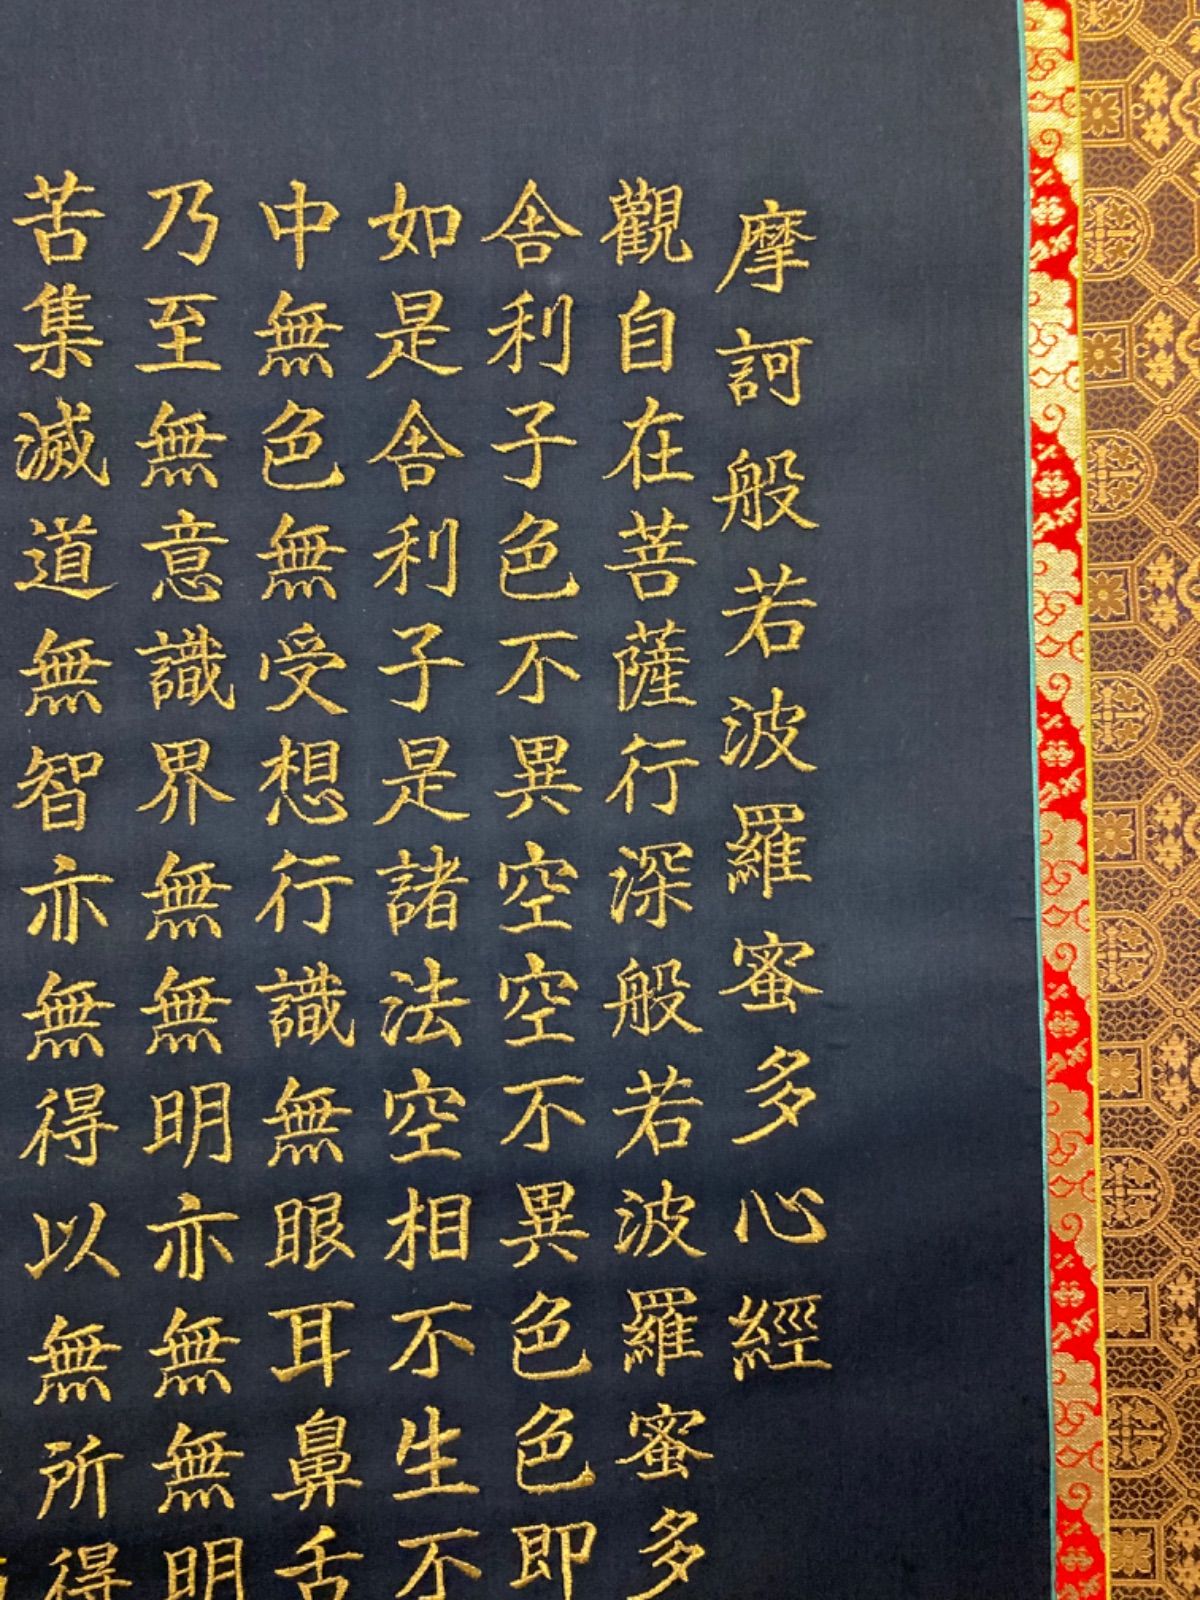 摩訶般若波羅蜜多心經
觀自在菩薩行深般若波羅蜜多
舎利子色不異空空不異色色即
如是舎利子是諸法空相不生不
中無色無受想行識無眼耳鼻舌
乃至無意識界無無明亦無無明
苦集滅道無智亦無得以無所得